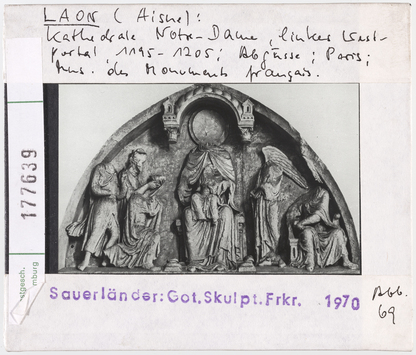 LAON (Aisne):
Kathedrale Notre-Dame, linkes West-
portal, 1195-1205; Abgüsse; Paris;
Mus. des Monuments français.
177639
stgesch.
mburg
Sauerländer: Got. Skulpt. Frkr. 1970
Abb.
69